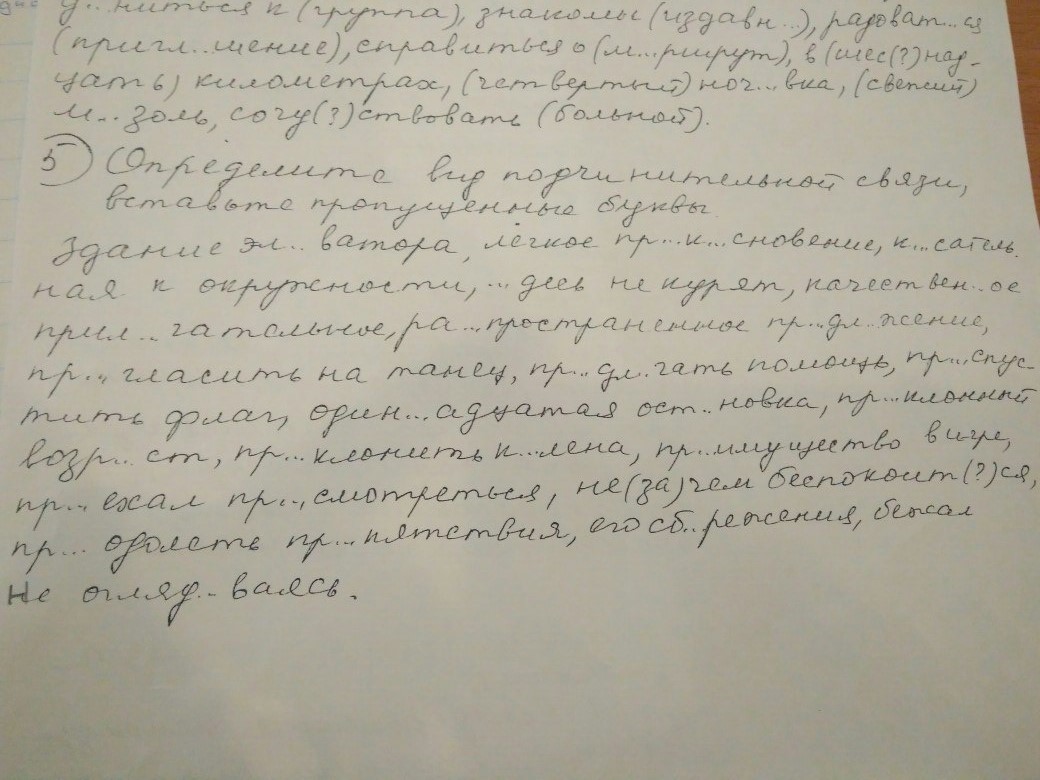 ..ниться к (группа), знакомы (издавн..), радоват...ся
(пригл..шение), справиться о (м...ршрут), в (шес(?)над-
цать) километрах, (четвертый) ноч...вка, (свежий)
м...золь, сочу(?)ствовать (больной).
5 Определите вид подчинительной связи,
вставьте пропущенные буквы.
Здание эл..ватора, лёгкое пр...к...сновение, к...сатель
ная к окружности, ...десь не курят, качествен..ое
прил...гательное, ра...пространенное пр...дл..жение,
пр...гласить на танец, пр...дл.гать помощь, пр...спус-
тить флаг, один...адцатая ост..новка, пр...клонный
возр...ст, пр...клонить к...лена, пр..имущество в игре,
пр...ехал пр...смотреться, не(за)чем беспокоит(?)ся,
пр...одолеть пр...пятствия, его сб..режения, бежал
не огляд..ваясь.